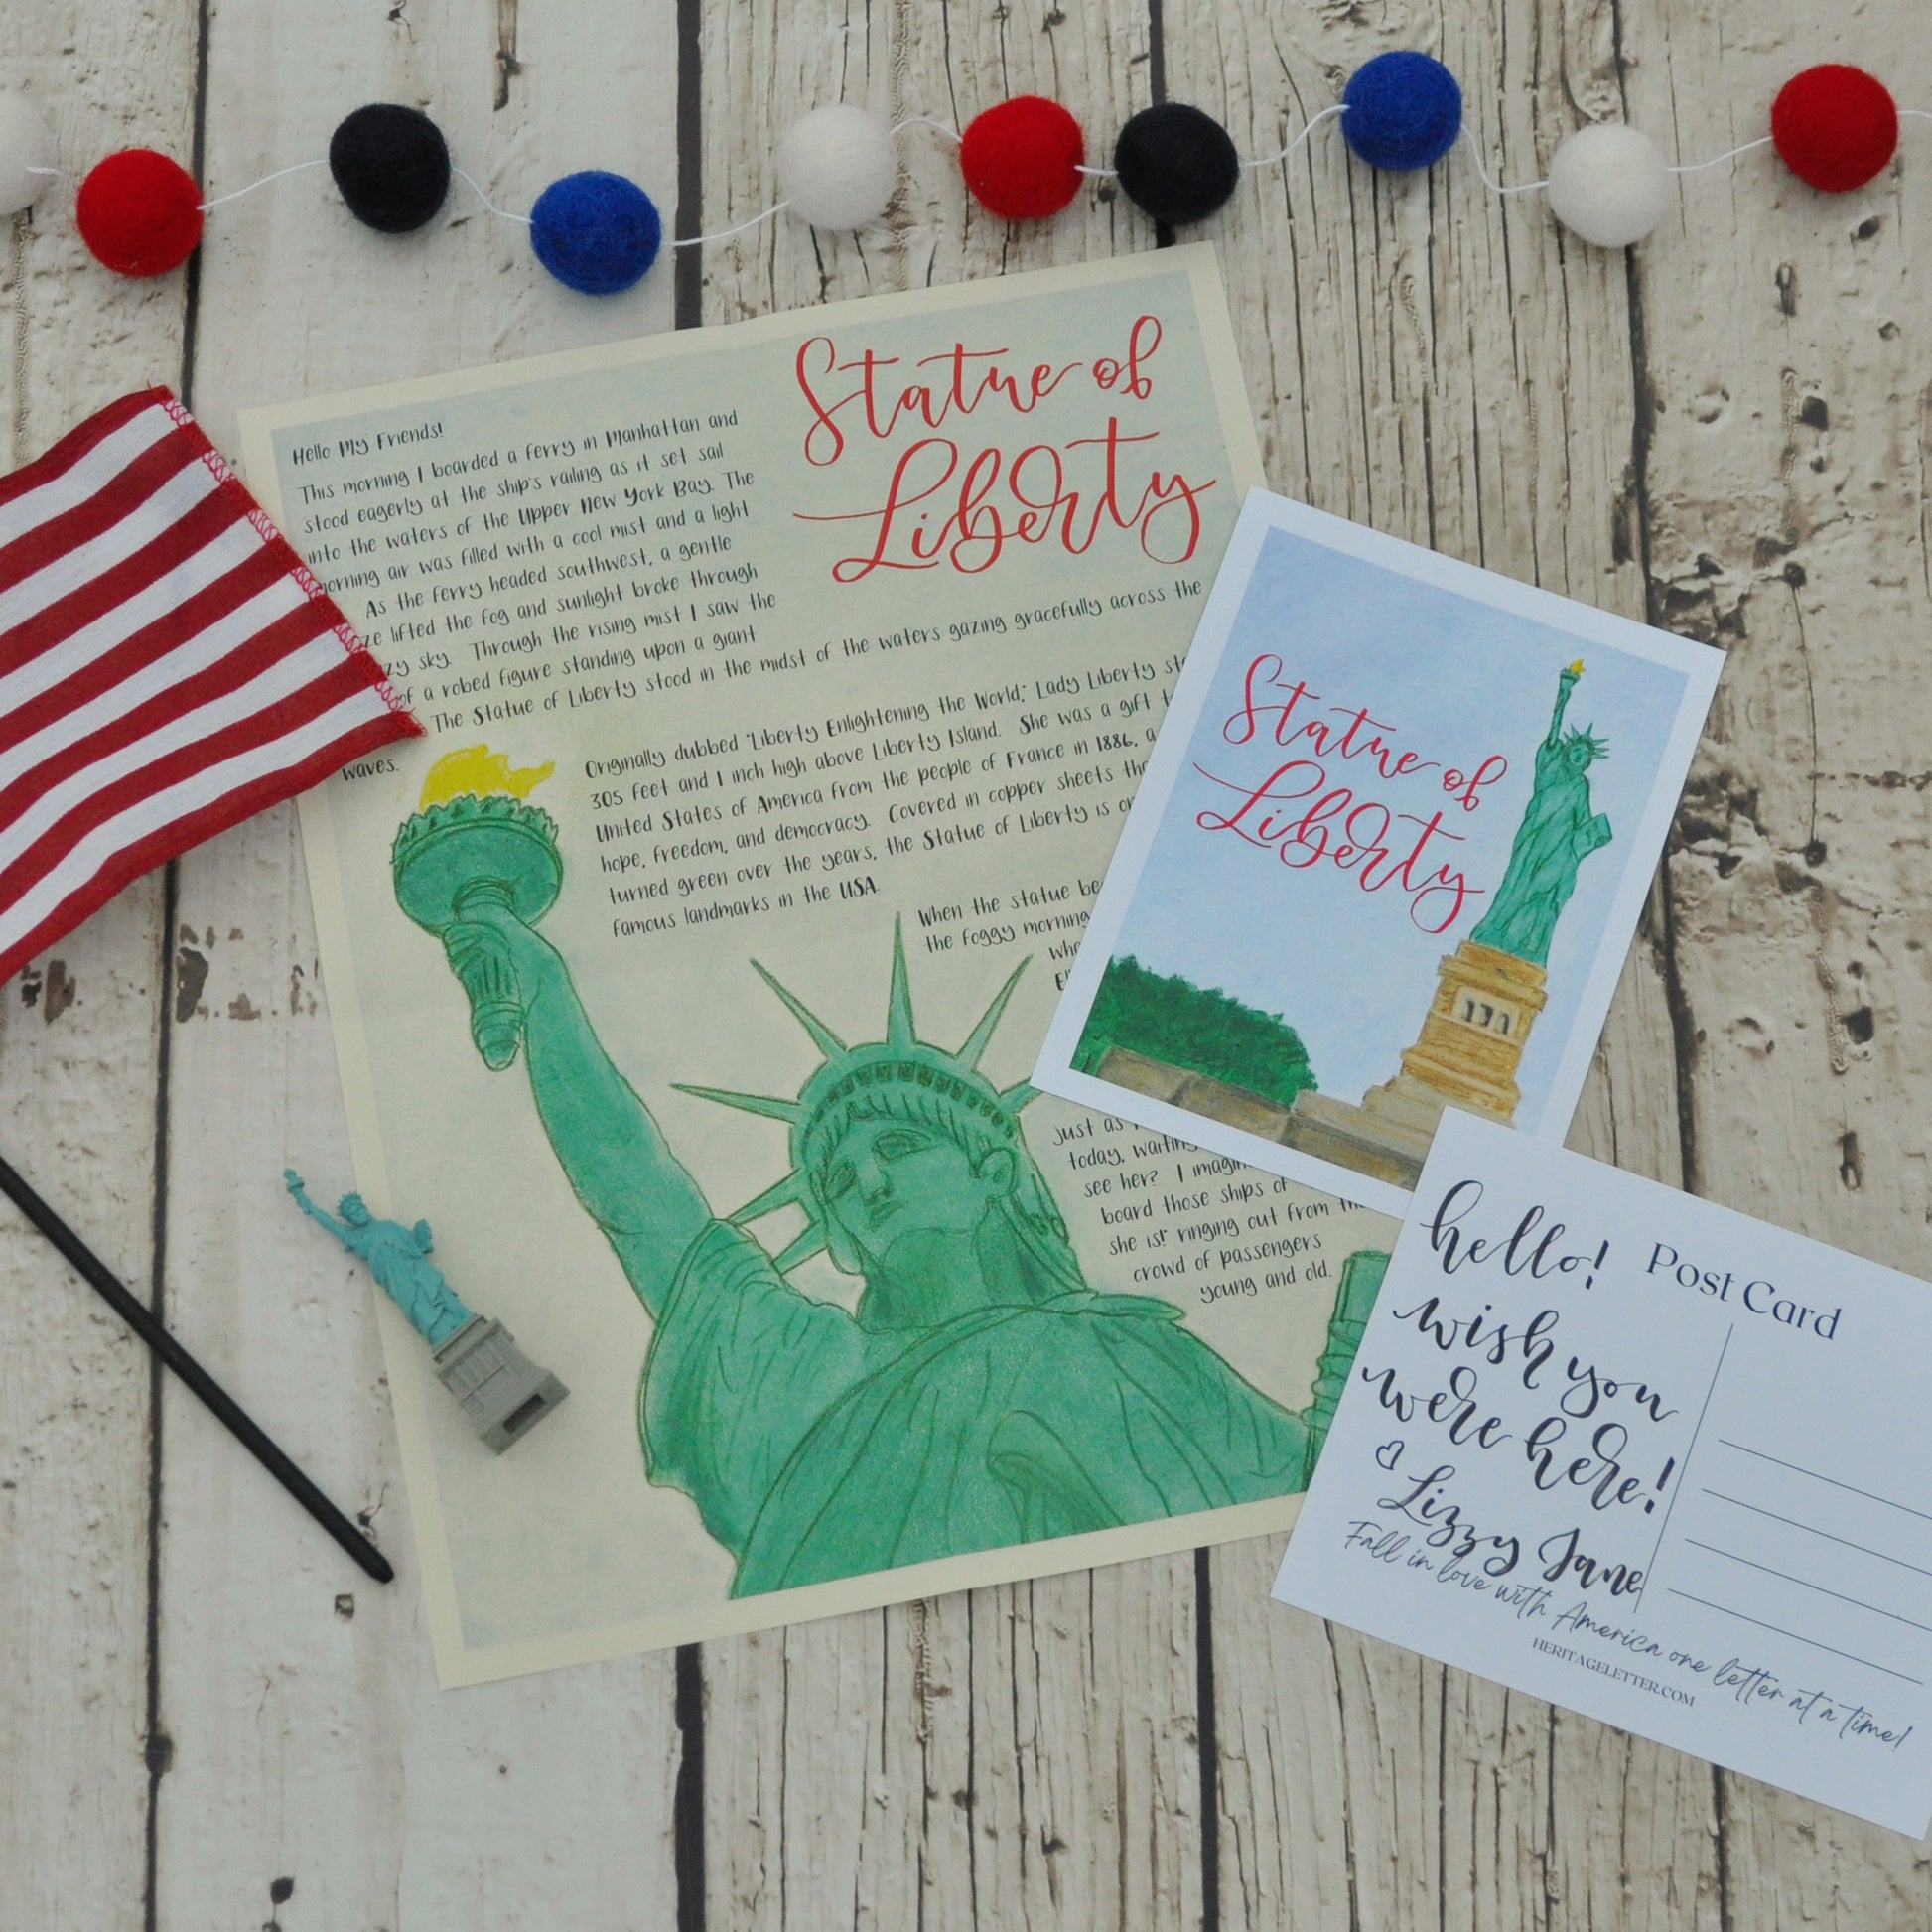 Statue of
Liberty
Hello My Friends!
This morning I boarded a ferry in Manhattan and
stood eagerly at the ship's railing as it set sail
into the waters of the Upper New York Bay. The
morning air was filled with a cool mist and a light
As the ferry headed southwest, a gentle
ze lifted the fog and sunlight broke through
zy sky. Through the rising mist I saw the
of a robed figure standing upon a giant
The Statue of Liberty stood in the midst of the waters gazing gracefully across the
waves.
Originally dubbed "Liberty Enlightening the World," Lady Liberty
305 feet and 1 inch high above Liberty Island. She was a gift
United States of America from the people of France in 1886, a
hope, freedom, and democracy. Covered in copper sheets
turned green over the years, the Statue of Liberty is
famous landmarks in the USA.
When the statue
the foggy morning
Just as
today, waiting
see her? I imagin
board those ships of
she is!" ringing out from
crowd of passengers
young and old.
Statue of
Liberty
Post Card
hello!
wish you
were here!
Lizzy Jane
Fall in love with America one letter at a time!
HERITAGELETTER.COM